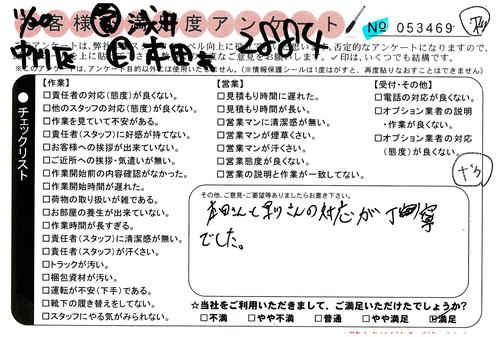 お客様満足度アンケート
No 053469
11/30
浅井
2887
アンケートは、弊社
※このアンケートは、アンケート目的以外には使用いたしません。(※情報保護シールは1度はがすと、再度貼りなおすことはできません)
チェックリスト
【作業】
□責任者の対応(態度)が良くない。
□他のスタッフの対応(態度)が良くない。
□作業を見ていて不安がある。
□責任者(スタッフ)に好感が持てない。
□お客様への挨拶が出来ていない。
□ご近所への挨拶・気遣いが無い。
□作業開始前の内容確認がなかった。
□作業開始時間が遅れた。
□荷物の取り扱いが雑である。
□お部屋の養生が出来ていない。
□作業時間が長すぎる。
□責任者(スタッフ)に清潔感が無い。
□責任者(スタッフ)が汗くさい。
□トラックが汚い。
□梱包資材が汚い。
□運転が不安(下手)である。
□靴下の履き替えをしてない。
□スタッフにやる気がみられない。
【営業】
□見積もり時間に遅れた。
□見積もり時間が長い。
□営業マンに清潔感が無い。
□営業マンが煙草くさい。
□営業マンが汗くさい。
□営業態度が良くない。
□営業の説明と作業が一致してない。
【受付・その他】
□電話の対応が良くない。
□オプション業者の説明
・作業が良くない。
□オプション業者の対応
(態度)が良くない。
その他、ご意見・ご要望等ありましたらお書き下さい。
さんの対応が丁寧
でした。
☆当社をご利用いただきまして、ご満足いただけたでしょうか?
□不満 □やや不満 □普通 □やや満足 ☑満足